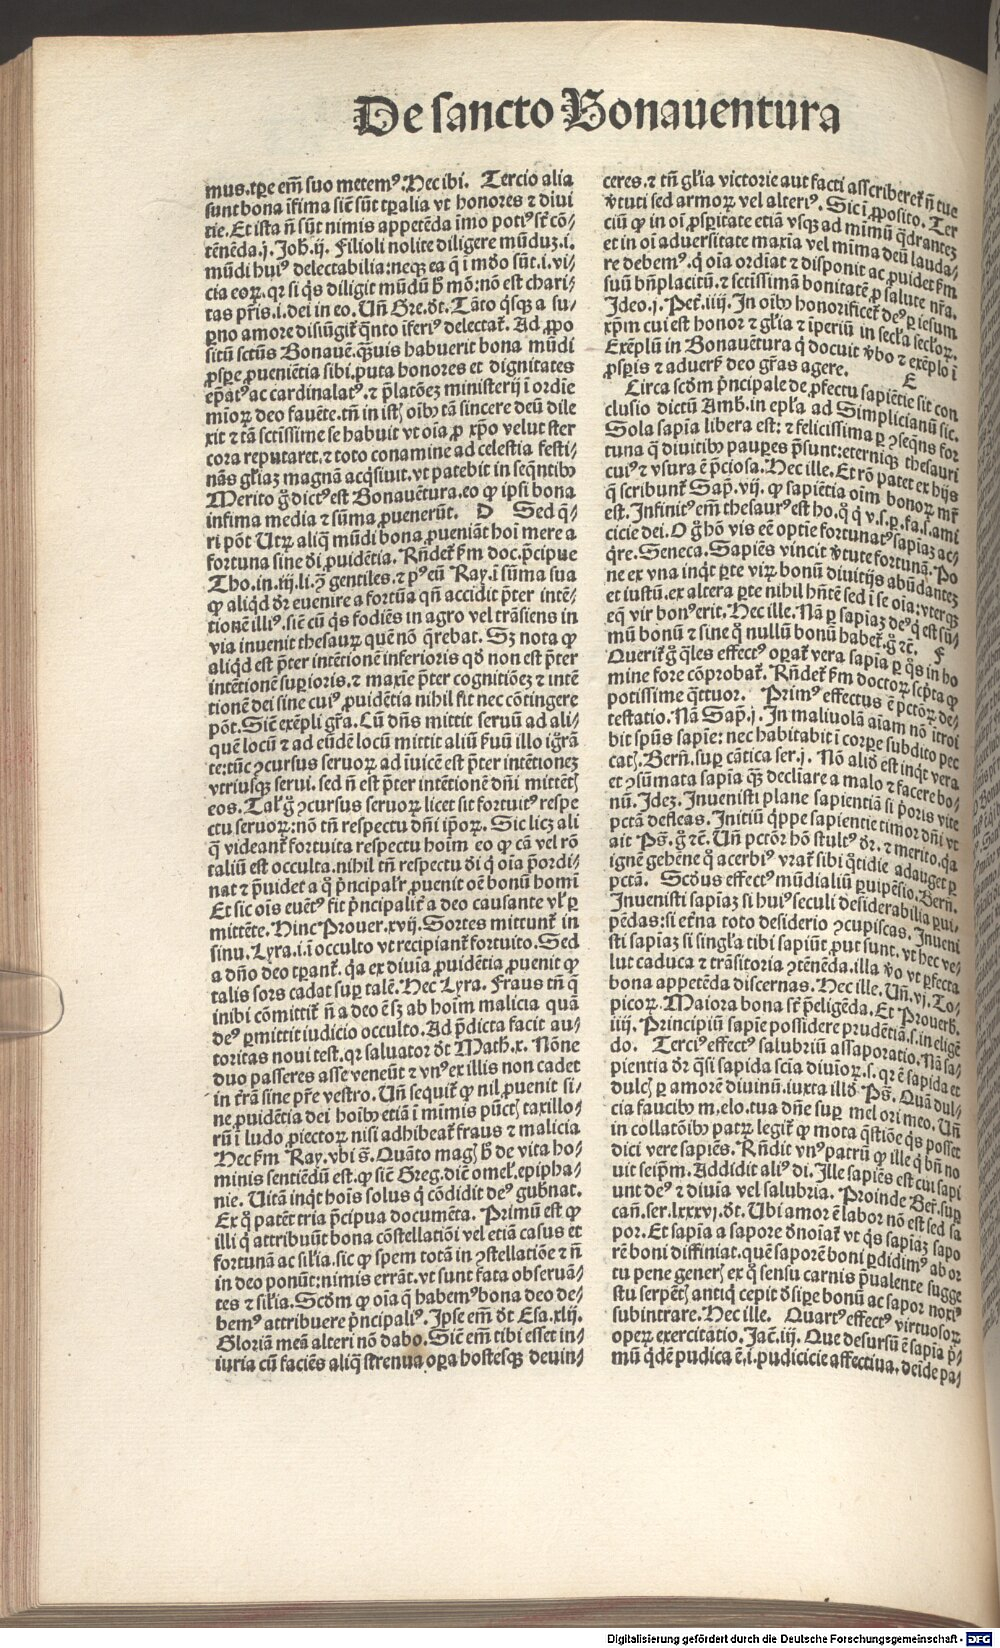 De sancto Bonauentura
mus.tp̱e em̄ suo metemꝰ.Hec ibi. Tercio alia
sunt bona īfima sic̄ sūt tp̱alia vt honores ⁊ diui
tie.Et ista n̄ sūt nimis appetēda īmo potiꝰ st̄ cō-
tēnēda.j.Joh̄.ij. Filioli nolite diligere mūduꝫ.i.
mūdi huiꝰ delectabilia:neqꝫ ea q̄ ī mūdo sūt.i.vi-
cia eoꝝ.qꝛ si q̄s diligit mūdū h̄ mō:nō est chari-
tas pr̄is.i.dei in eo. Un̄ Gre.dt̄. Tāto q̄sqꝫ a su-
ꝑno amore disiūgit̄ q̄nto īferiꝰ delectat̄. Ad ꝓpo
sitū sctūs Bonauē.qꝫuis habuerit bona mūdi
ꝓspe ꝓueniētia sibi.puta honores et dignitates
ep̄atꝰ ac cardinalatꝰ.⁊ p̄latōeꝫ ministerij ī ordīe
mīoꝝ deo fauēte.tn̄ in istꝭ oībꝰ tā sincere deū dile
xit ⁊ tā sctissime se habuit vt oīa ꝓ xp̄o velut ster
cora reputaret.⁊ toto conamine ad celestia festi-
nās gl̄iaꝫ magnā acq̄siuit.vt patebit in seq̄ntibꝰ
Merito g̊ dictꝰ est Bonauētura.eo ꝙ ipsi bona
infima media ⁊ sūma ꝓuenerūt. D Sed q̄-
ri pōt Utꝝ aliq̄ mūdi bona ꝓueniāt hoī mere a
fortuna sine dī ꝓuidētia. Rn̄det̄ ẜm doc.p̄cipue
Tho.in.iij.li.ꝯ gentiles.⁊ pꝰ eū Ray.ī sūma sua
ꝙ aliq̄d dr̄ euenire a fortūa qn̄ accidit p̄ter intē-
tionē illiꝰ.sic̄ cū q̄s fodiēs in agro vel trāsiens in
via inuenit thesauꝝ quē nō q̄rebat. Sꝫ nota ꝙ
aliq̄d est p̄ter intētionē inferioris qd̄ non est p̄ter
intētionē suꝑioris.⁊ maxīe p̄ter cognitiōeꝫ ⁊ intē
tionē dei sine cuiꝰ ꝓuidētia nihil fit nec cōtingere
pōt. Sic̄ exēpli gr̄a. Cū dn̄s mittit seruū ad ali-
quē locū ⁊ ad eūdē locū mittit aliū ẜuū illo īgrā
te:tūc ꝯcursus seruoꝝ ad īuicē est p̄ter intētioneꝫ
vtriusqꝫ serui.sed n̄ est p̄ter intētionē dn̄i mittētꝭ
eos. Tal̄ g̊ ꝯcursus seruoꝝ licet sit fortuitꝰ respe
ctu seruoꝝ:nō tn̄ respectu dn̄i ip̄oꝝ. Sic licꝫ ali
q̄ videant̄ fortuita respectu hoīm eo ꝙ cā vel rō
taliū est occulta.nihil tn̄ respectu dī q̄ oīa p̄ordi-
nat ⁊ p̄uidet a q̊ p̄ncipalr̄ ꝓuenit oē bonū homī
Et sic oīs euētꝰ fit p̄ncipalit̄ a deo causante vl̄ ꝑ
mittēte. Hinc Prouer.xvij. Sortes mittunt̄ in
sinu. Lyra.i.ī occulto vt recipiant̄ fortuito. Sed
a dn̄o deo tꝑant̄. q̄a ex diuīa ꝓuidētia ꝓuenit ꝙ
talis sors cadat suꝑ talē. Hec Lyra. Fraus tn̄ q̄
inibi cōmittit̄ n̄ a deo ē sꝫ ab hoīm malicia quā
deꝰ ꝑmittit iudicio occulto. Ad p̄dicta facit au-
toritas noui test.qꝛ saluator dt̄ Math.x. Nōne
duo passeres asse veneūt ⁊ vnꝰ ex illis non cadet
in t̄rā sine pr̄e vestro. Un̄ sequit̄ ꝙ nil ꝓuenit si-
ne ꝓuidētia dei hoībꝰ etiā ī mīmis pūctꝭ taxillo-
rū ī ludo ꝓiectoꝝ nisi adhibeat̄ fraus ⁊ malicia
Hec ẜm Ray.vbi s̄. Quāto magꝭ h̄ de vita ho-
minis sentiēdū est.ꝙ sic̄ Greg.dic̄ omel̄.epipha-
nie. Uitā inq̄t hoīs solus q̄ cōdidit deꝰ gub̄nat.
Ex q̊ patēt tria p̄cipua documēta. Primū est ꝙ
illi q̄ attribuūt bona cōstellatiōi vel etiā casus et
fortunā ac sil̄ia.sic ꝙ spem totā in ꝯstellatiōe ⁊ n̄
in deo ponūt:nimis errāt.vt sunt fata obseruā-
tes ⁊ sil̄ia. Scd̄m ꝙ oīa q̄ habemꝰ bona deo de-
bemꝰ attribuere p̄ncipaliꝰ. Ipse em̄ dt̄ Esa.xlij.
Gloriā meā alteri nō dabo. Sic̄ em̄ tibi esset in-
iuria cū faciēs aliq̄ strenua oꝑa hostesqꝫ deuin-
ceres.⁊ tn̄ gl̄ia victorie aut facti asscriberet̄ n̄ tue
v̄tuti sed armoꝝ vel alteriꝰ. Sic ī ꝓposito. Ter
ciū ꝙ in oī ꝓsꝑitate etiā vsqꝫ ad mīmū q̄dranteꝫ
et in oī aduersitate maxīa vel mīma deū lauda-
re debemꝰ.q̄ oīa ordīat ⁊ disponit ac ꝓuidet ẜm
suū bn̄placitū.⁊ sctissimā bonitatē ꝓ salute nr̄a.
Ideo.j. Pet̄.iiij. In oībꝰ honorificet̄ deꝰ ꝑ iesum
xp̄m cui est honor ⁊ gl̄ia ⁊ īperiū in secl̄a secl̄oꝝ.
Exēplū in Bonauētura q̄ docuit v̄bo ⁊ exēplo ī
ꝓsꝑis ⁊ aduerẜ deo gr̄as agere. E
Circa scd̄m p̄ncipale de ꝓfectu sapiētie sit con
clusio dictū Amb̄.in epl̄a ad Simplicianū sic.
Sola sapīa libera est: ⁊ felicissima ꝑ ꝯseq̄ns for
tuna q̄ diuitibꝰ pauꝑes p̄sunt:eterniqꝫ thesauri
cuiꝰ ⁊ vsura ē p̄ciosa. Hec ille. Et rō patet ex hijs
q̄ scribunt̄ Sap̄.vij. ꝙ sapiētia oīm bonoꝝ mr̄
est. Infinitꝰ em̄ thesaurꝰ est ho.q̊ q̄ v.s.ꝑ.fa.s.ami
cicie dei. O g̊ hō vis eē optie fortunatꝰ sapīaꝫ ac-
q̄re. Seneca. Sapiēs vincit v̄tute fortunā. Po
ne ex vna inq̄t ꝑte viꝝ bonū diuitijs abūdanteꝫ
et iustū.ex altera ꝑte nihil hn̄tē sed ī se oīa:vterqꝫ
eq̄ vir bonꝰ erit. Hec ille. Nā ꝑ sapīaꝫ deꝰ q̄ est sū-
mū bonū ⁊ sine q̊ nullū bonū habet̄.g̊ ⁊c̄. F
Querit̄ g̊ q̄les effectꝰ oꝑat̄ vera sapīa ꝑ q̄s in ho
mine fore cōprobat̄. Rn̄det̄ ẜm doctoꝝ sc̄pta ꝙ
potissime q̄ttuor. Primꝰ effectus ē pctōꝝ de-
testatio. Nā Sap̄.j. In maliuolā aīam nō ītroi
bit spūs sapīe: nec habitabit ī corꝑe subdito pec
cat̄. Bern̄.suꝑ cātica ser.j. Nō aliō est inq̄t vera
et ꝯsūmata sapīa qꝫ declīare a malo ⁊ facere bo-
nū. Ideꝫ. Inuenisti plane sapientiā si p̄oris vite
pctā defleas. Initiū q̄ppe sapientie timor dn̄i vt
ait Ps̄.g̊ ⁊c̄. Un̄ pctōr hō stultꝰ dr̄.⁊ merito.q̄a
ignē gehēne q̊ acerbiꝰ vrat̄ sibi q̄tidie adauget ꝑ
pctā. Scd̄us effectꝰ mūdialiū ꝑuipēsio. Bern̄.
Inuenisti sapīaꝫ si huiꝰ seculi desiderabilia ꝑui-
pēdas:si et̄na toto desiderio ꝯcupiscas. Inueni
sti sapīaꝫ si singl̄a tibi sapiūt ꝓut sunt.vt hec ve-
lut caduca ⁊ trāsitoria ꝯtēnēda.illa v̄o vt ꝑfecta
bona appetēda discernas. Hec ille. Un̄.vj. To-
picoꝝ. Maiora bona st̄ p̄eligēda. Et Prouerb̄.
iiij. Principiū sapīe possidere prudētiā.s.in eligē
do. Terciꝰ effectꝰ salubriū assaporatio. Nā sa-
pientia dr̄ q̄si sapida scīa diuīoꝝ.s.qꝛ ē sapida et
dulcꝭ ꝑ amorē diuinū.iuxta illd̄ Ps̄. Quā dul-
cia faucibꝰ m.elo.tua dn̄e suꝑ mel ori meo. Un̄
in collatōibꝰ patꝝ legit̄ ꝙ mota q̄stiōe q̄s posset
dici vere sapiēs. Rn̄dit vnꝰ patrū ꝙ ille q̄ bn̄ no
uit seip̄m. Addidit aliꝰ di. Ille sapiēs est cui sapi
unt deꝰ ⁊ diuīa vel salubria. Proinde Ber̄.suꝑ
can̄.ser.lxxxvj.dt̄. Ubi amor ē labor nō est sed sa
por. Et sapīa a sapore dnōiat̄ vt q̄s sapīaꝫ sapo
rē boni diffiniat.quē saporē boni ꝑdidimꝰ ab or
tu pene generꝭ ex q̊ sensu carnis p̄ualente sugge
stu serpētꝭ antiq̄ cepit dꝰsipe bonū ac sapor noxiꝰ
subintrare. Hec ille. Quartꝰ effectꝰ virtuosoꝝ
opeꝝ exercitatio. Jac̄.iij. Que desursū ē sapīa p̄-
mū q̄dē pudica ē.i.pudicicie affectiua.deīde pa-
Digitalisierung gefördert durch die Deutsche Forschungsgemeinschaft - DFG